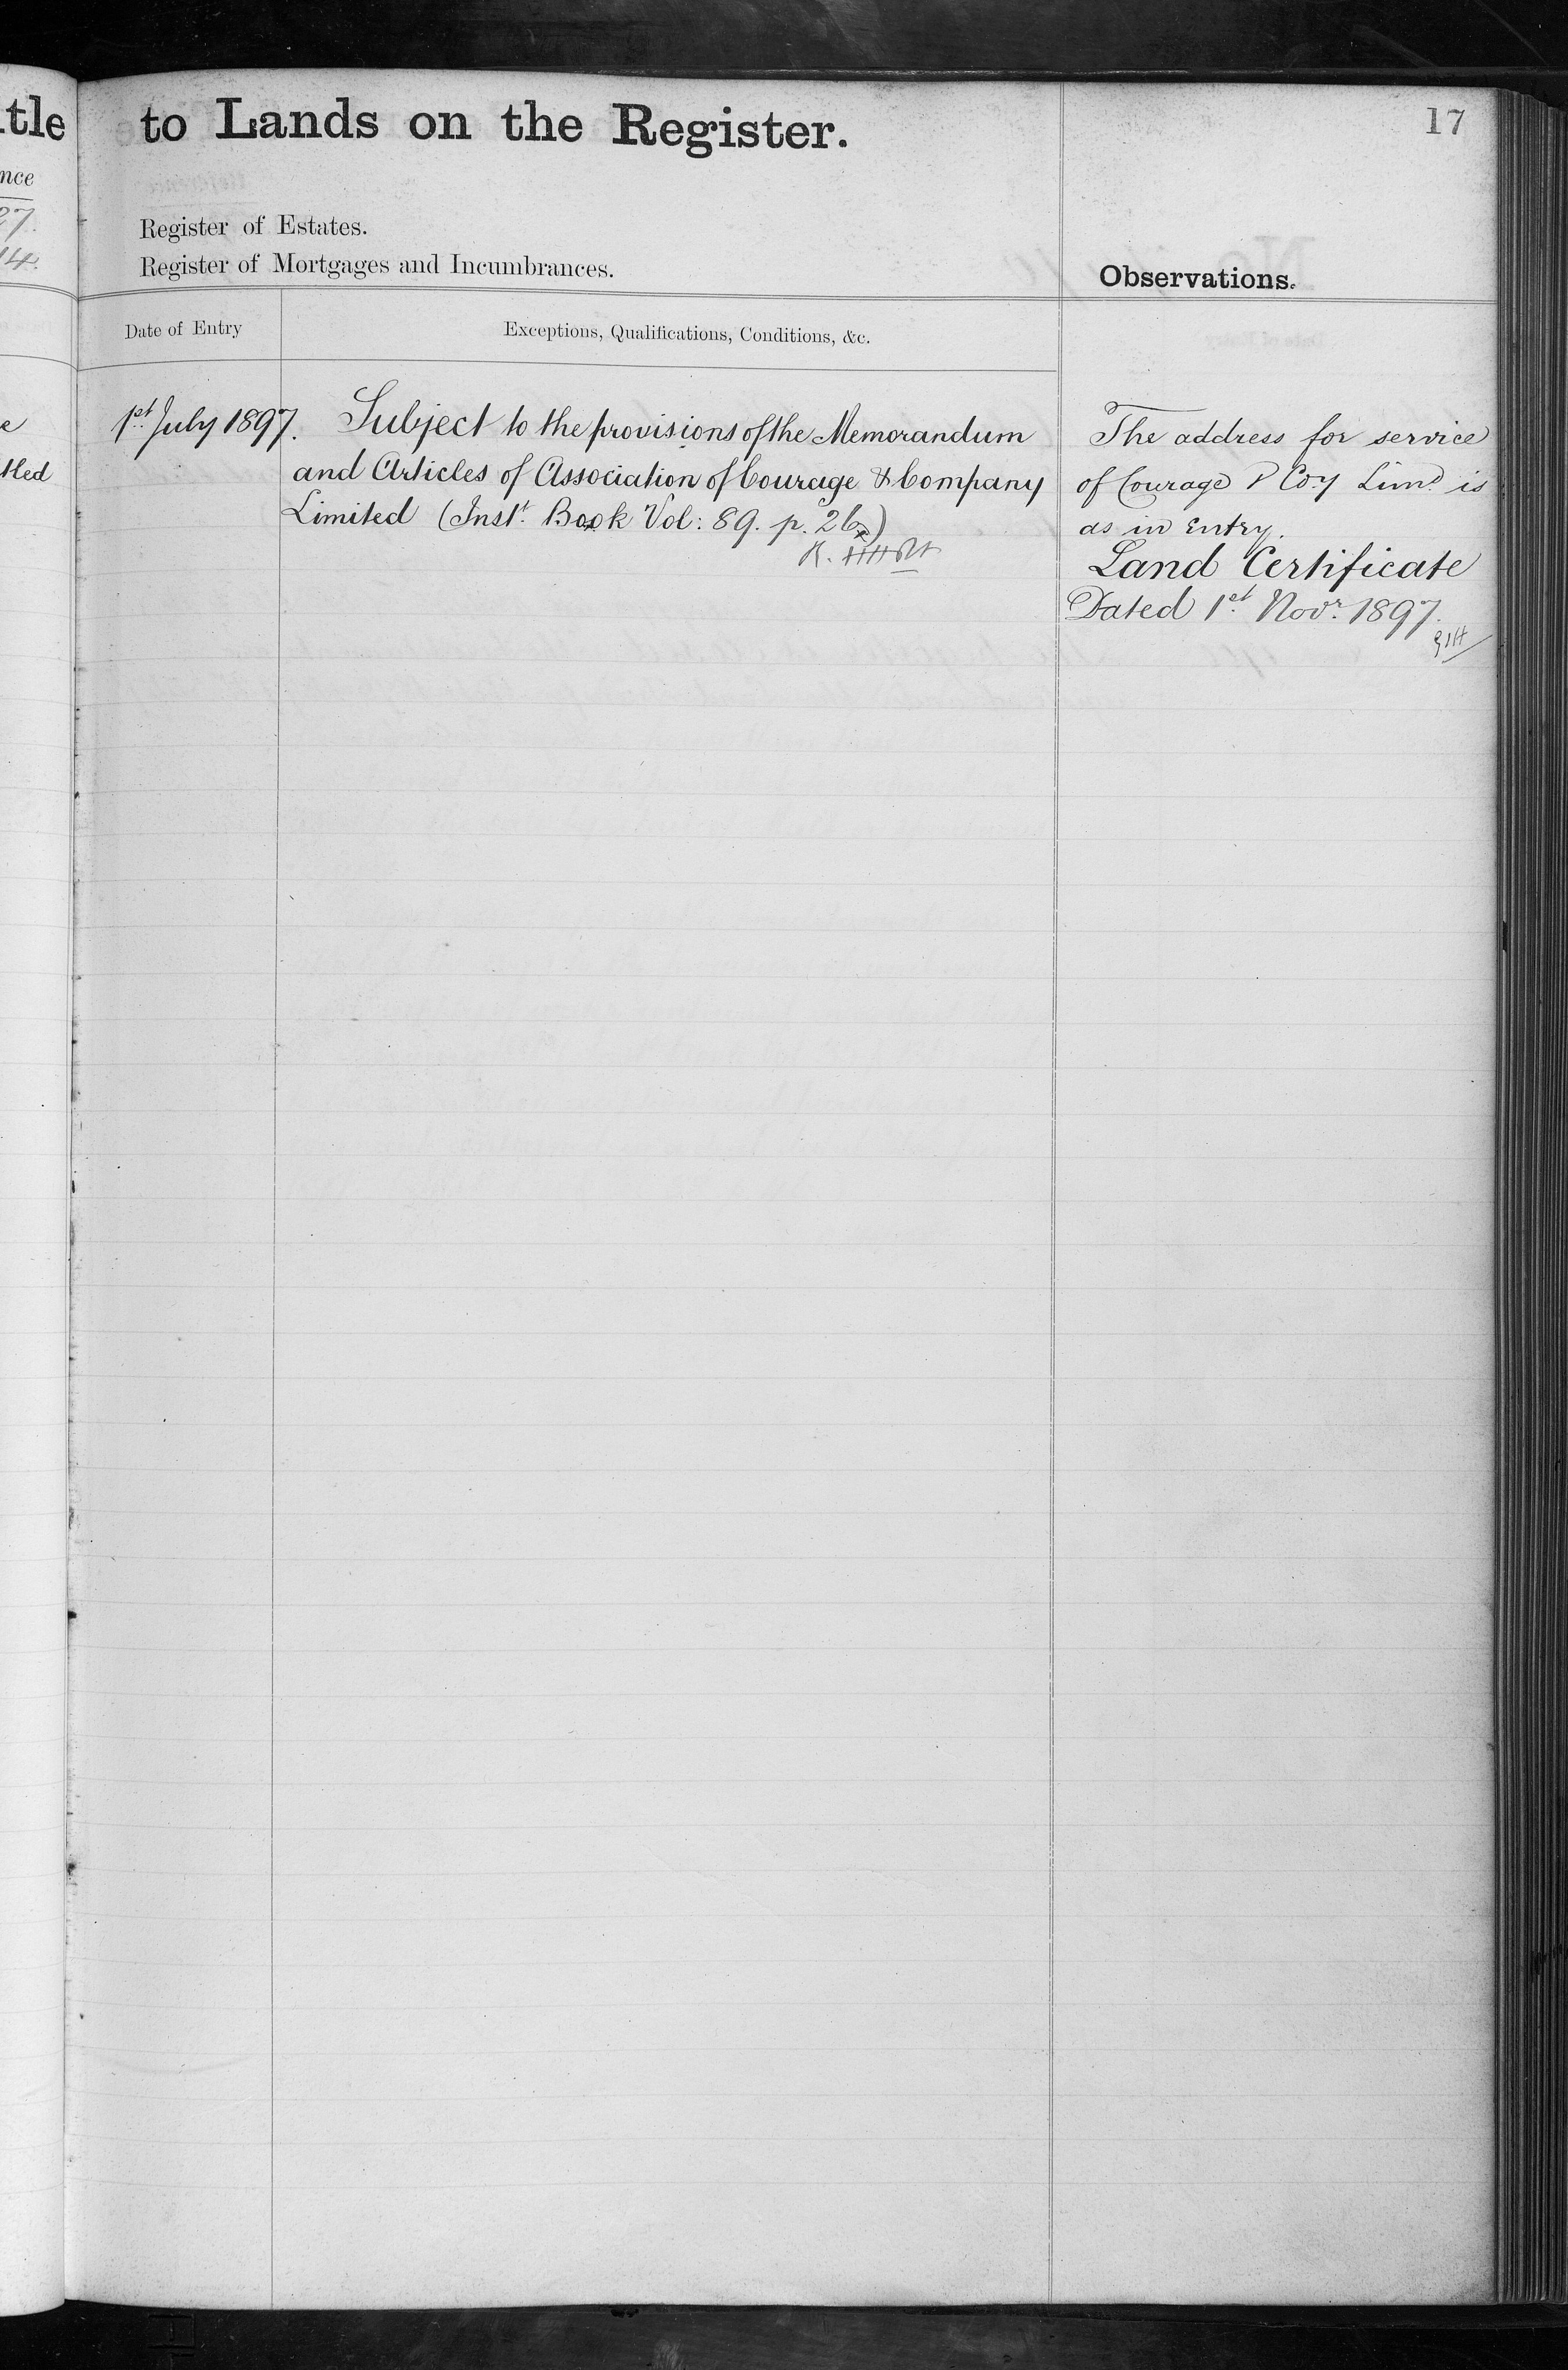 tle
nce
27.
14.
e
tled
to Lands on the Register.
17
Register of Estates.
Register of Mortgages and Incumbrances.
Observations.
Date of Entry
Exceptions, Qualifications, Conditions, &c.
1st July 1897.
Subject to the provisions of the Memorandum
and Articles of Association of Courage & Company
Limited (Instt. Book Vol: 89. p. 26)
The address for service
of Courage & Coy Limd. is
as in Entry.
Land Certificate
Dated 1st Novr. 1897.